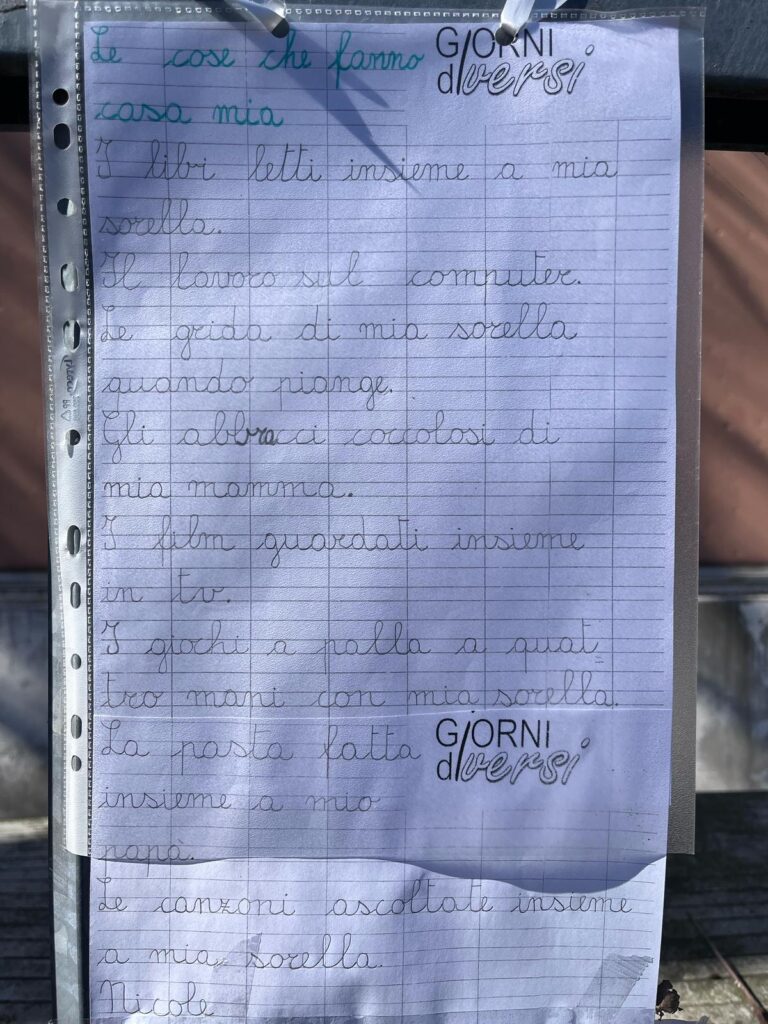 Le cose che fanno
casa mia
GIORNI
diversi
I libri letti insieme a mia
sorella.
Il lavoro sul computer.
Le grida di mia sorella
quando piange.
Gli abbracci coccolosi di
mia mamma.
I film guardati insieme
in tv.
I giochi a palla a quat
tro mani con mia sorella.
La pasta fatta
GIORNI
diversi
insieme a mio
papà.
Le canzoni ascoltate insieme
a mia sorella.
Nicole